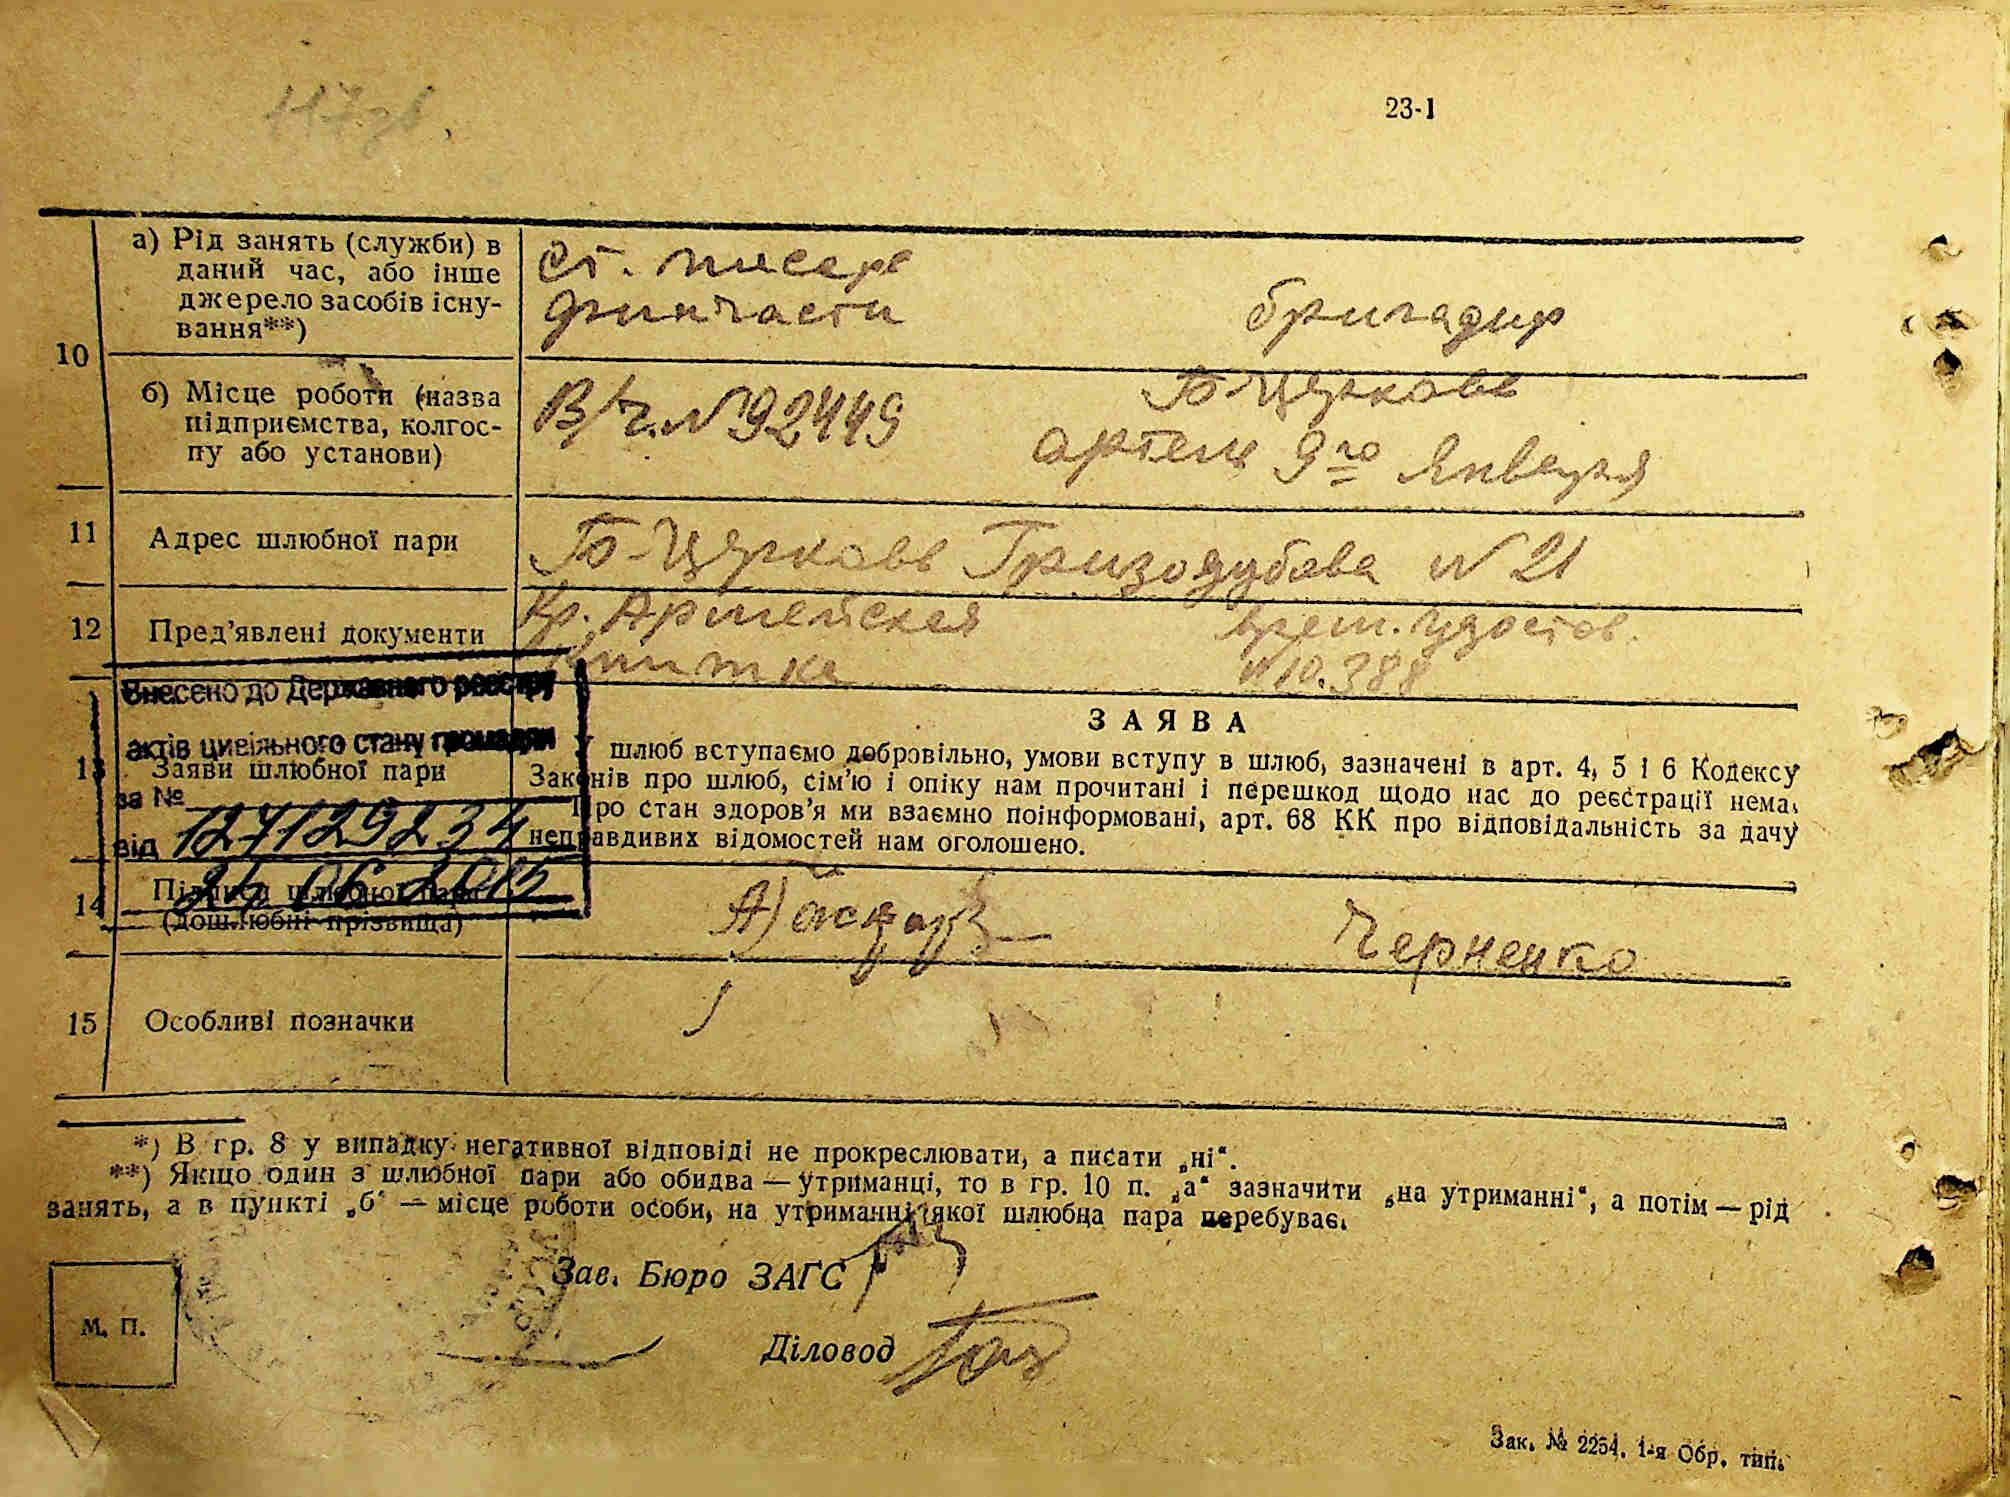 117зв.
23-1
10
а) Рід занять (служби) в даний час, або інше джерело засобів існування**)
Ст. писарь
финчасти
бригадир
б) Місце роботи (назва підприємства, колгоспу або установи)
В/Ч. №92449
Б-Церковь
артель 9го Января
11 Адрес шлюбної пари
Б-Церковь Гризодубова № 21
12 Пред’явлені документи
Кр. Армейская
книжка
врем. удостов.
№ 10.388
Внесено до Державного реєстру
актів цивільного стану громадян
за № 127129234
від 24 06 2015
13 Заяви шлюбної пари
ЗАЯВА
У шлюб вступаємо добровільно, умови вступу в шлюб, зазначені в арт. 4, 5 і 6 Кодексу
Законів про шлюб, сім’ю і опіку нам прочитані і перешкод щодо нас до реєстрації нема,
Про стан здоров’я ми взаємно поінформовані, арт. 68 КК про відповідальність за дачу
неправдивих відомостей нам оголошено.
14 Підписи шлюбної пари
(дошлюбні прізвища)
Черненко
15 Особливі позначки
*) В гр. 8 у випадку негативної відповіді не прокреслювати, а писати „ні“.
**) Якщо один з шлюбної пари або обидва — утриманці, то в гр. 10 п. „а“ зазначити „на утриманні“, а потім — рід
занять, а в пункті „б“ — місце роботи особи, на утриманні якої шлюбна пара перебуває.
Зав. Бюро ЗАГС
М. П.
Діловод
Зак. № 2254. 1-я Обр. тип.